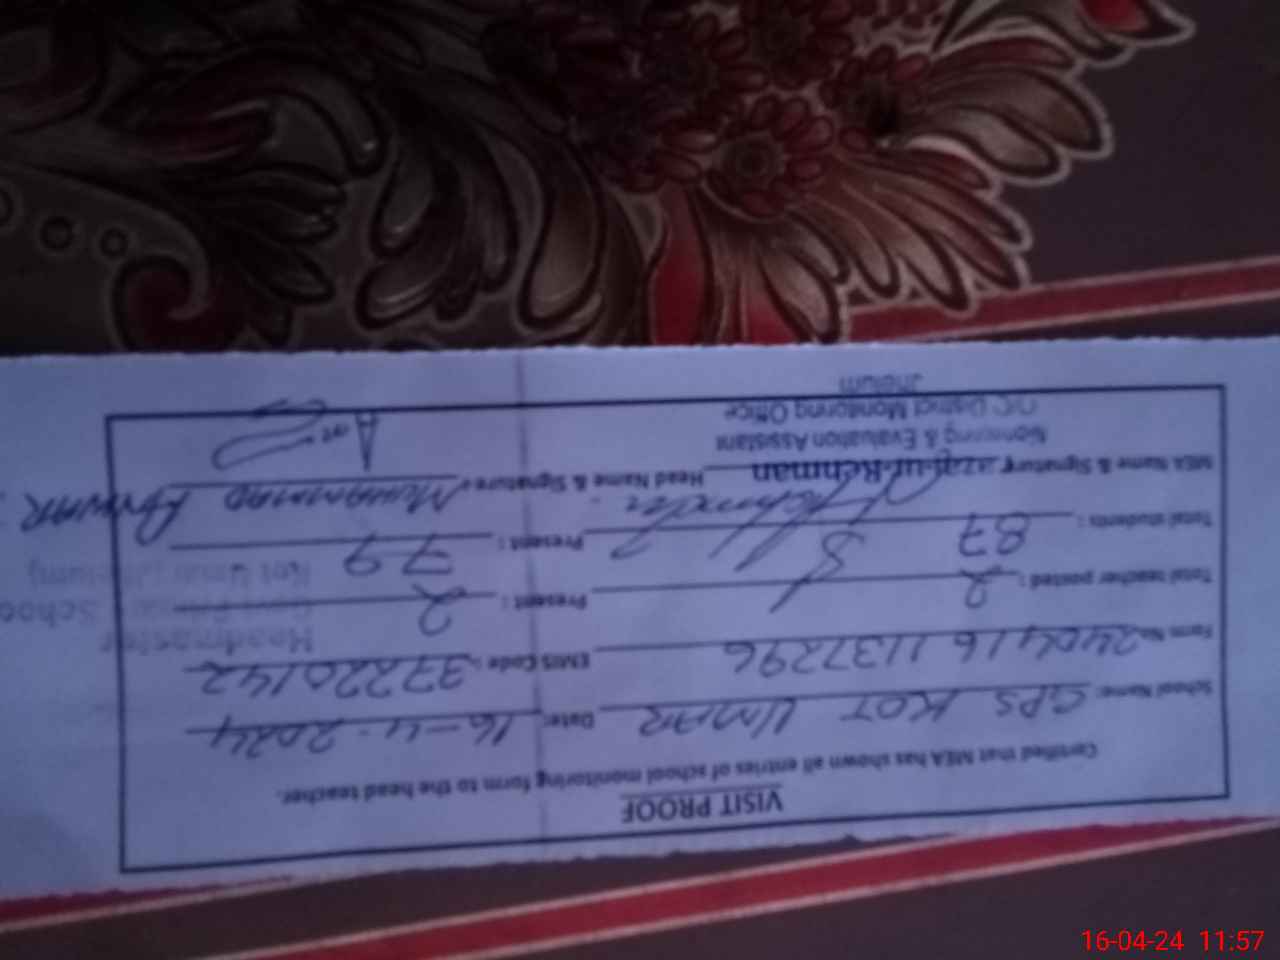 VISIT PROOF
Certified that MEA has shown all entries of school monitoring form to the head teacher.
School Name: GPS KOT UMAR Date: 16-4-2024
Form No 2404161137296 EMIS Code: 37220142
Total teacher posted: 2 Present: 2
Total students: 87 Present: 79
MEA Name & Signature ur-Rehman Head Name & Signature MUHAMMAD ANWAR
Monitoring & Evaluation Assistant
O/C District Monitoring Office
Jhelum
Headmaster
Govt Primary School
Kot Umar Jhelum
16-04-24 11:57